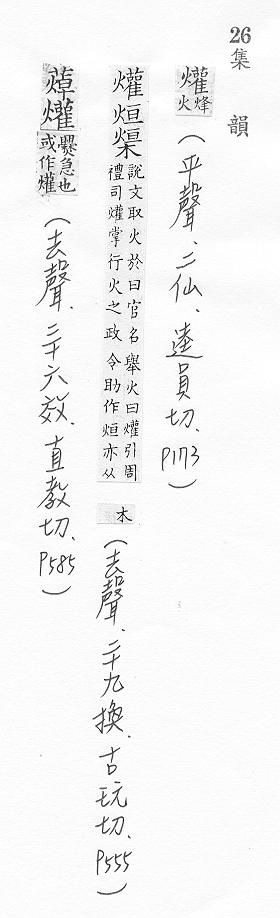 26
集韻
爟 烽火
(平聲、二仙、逵員切、P173)
爟烜㷄 說文取火於日官名舉火曰爟引周
禮司爟掌行火之政令助作烜亦从
木
(去聲、二十九換、古玩切、P555)
爟 爨急也
或作爟
(去聲、三十六效、直教切、P585)